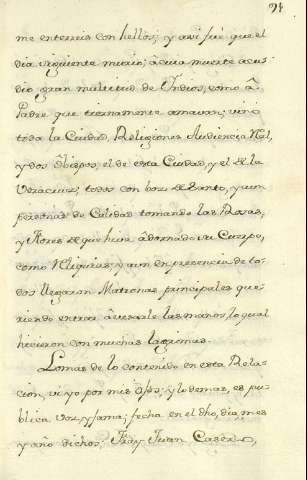 94.
me enterreis con hellos; y assi fue que el
dia siguiente murio; a cuia muerte acu-
dio gran multitud de Indios, como â
Padre que tiernamente amavan; vino
toda la Ciudad, Religiones Audiencia Rl,
y dos Obispos, el de esta Ciudad, y el de la
Veracruz; todos con boz de Santo, y aun
personas de Calidad tomando las Rosas,
y flores de que hiva âdornado su Cuerpo,
como Reliquias; y aun en presencia de to-
dos llegaron Matronas principales que-
riendo entrar â vesarle las manos, lo qual
hicieron con muchas lagrimas.
Lo mas de lo contenido en esta Rela-
cion, vi yo por mis ojos; y lo demas, es pu-
blica voz, y fama; fecha en el dho, dia, mes
y año dichos; Fray Juan